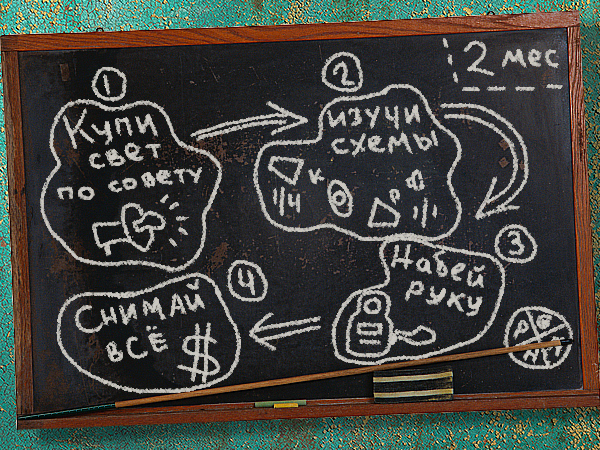 2 мес
1
Купи
свет
по совету
2
изучи
схемы
1/4
К
1/1
3
Набей
руку
4
Снимай
всё
$